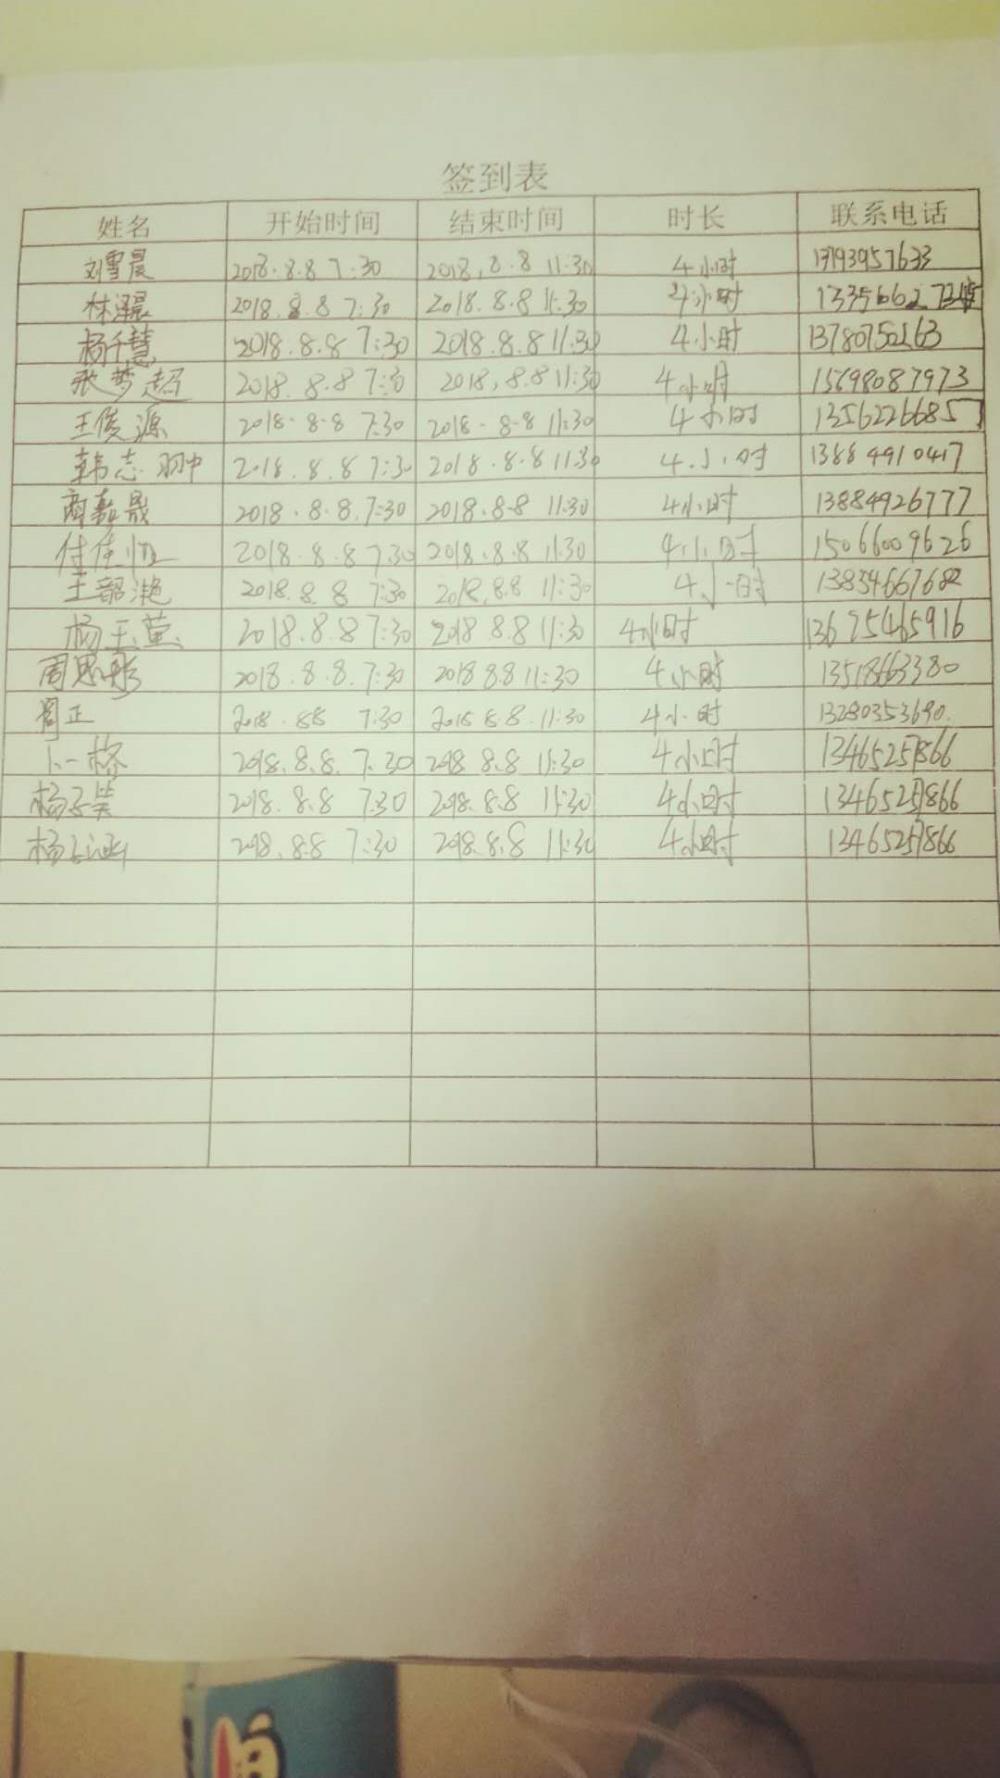 签到表
姓名 开始时间 结束时间 时长 联系电话
刘雪晨 2018.8.8 7:30 2018.8.8 11:30 4小时 13793957633
林 2018.8.8 7:30 2018.8.8 11:30 4小时
杨千慧 2018.8.8 7:30 2018.8.8 11:30 4小时 13780752163
张梦超 2018.8.8 7:30 2018.8.8 11:30 4小时 15698087973
王俊源 2018.8.8 7:30 2018.8.8 11:30 4小时 13562266857
韩志翀 2018.8.8 7:30 2018.8.8 11:30 4小时 13884910417
商嘉晟 2018.8.8.7:30 2018.8.8 11:30 4小时 13884926777
付佳恒 2018.8.8 7:30 2018.8.8 11:30 4小时 15066009626
王韶滟 2018.8.8 7:30 2018.8.8 11:30 4小时 13854667682
杨玉莹 2018.8.8 7:30 2018 8.8 11:30 4小时 13675465916
周思彤 2018.8.8.7:30 2018 8.8 11:30 4小时 13518663380
周正 2018.8.8 7:30 2018 8.8.11:30 4小时 13280353690
卜一桥 2018.8.8.7:30 2018 8.8 11:30 4小时 13465251866
杨子笑 2018.8.8 7:30 2018.8.8 11:30 4小时 13465251866
杨子涵 2018.8.8 7:30 2018.8.8 11:30 4小时 13465251866